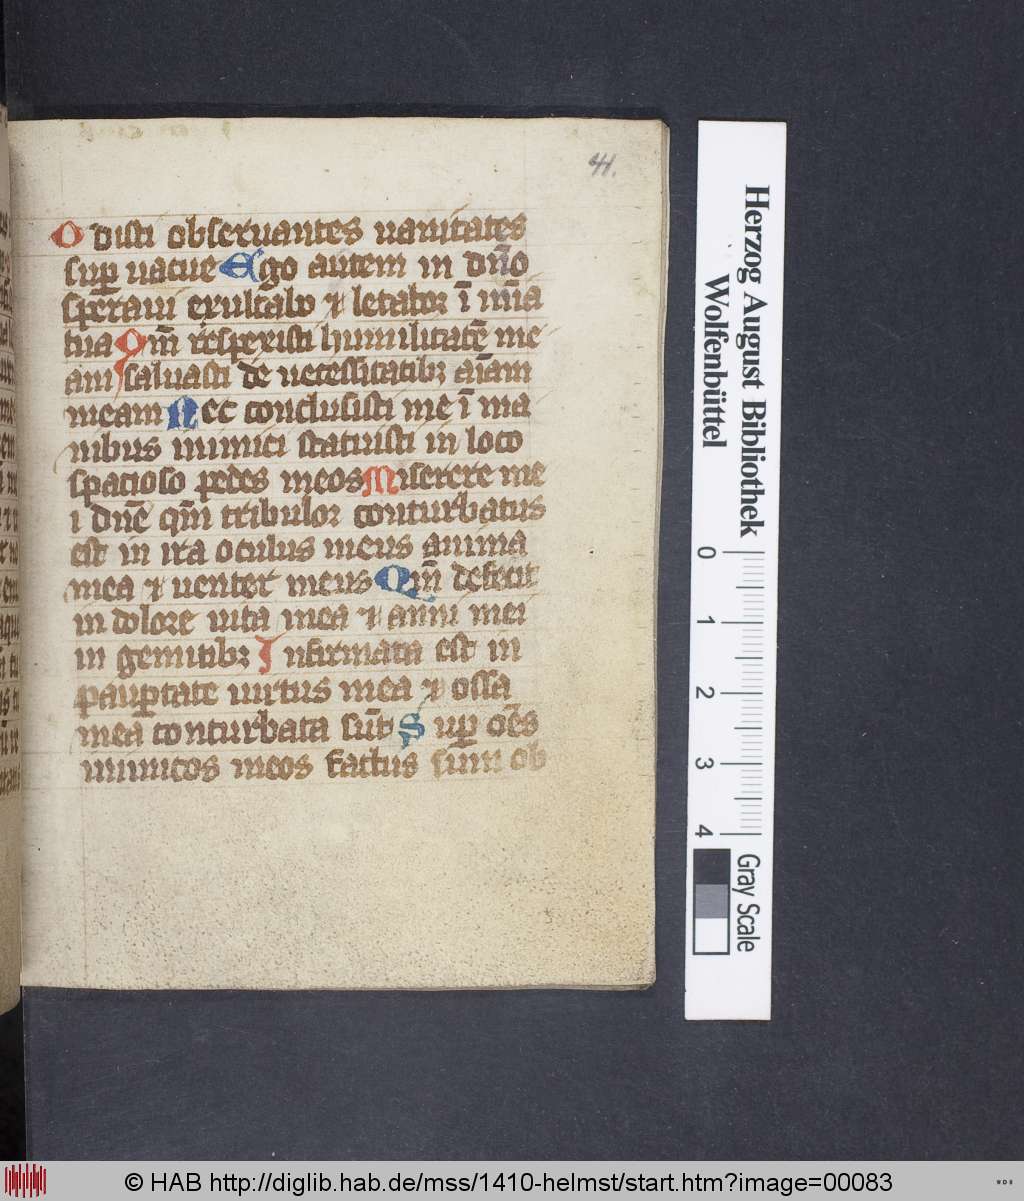 41.
Odisti obseruantes uanitates
suꝑ uacue Ego autem in dño
speraui exultabo ⁊ letaboꝛ ī mīa
tua Qm̄ respexisti humilitatē me
am saluasti de necessitatibꝫ aīam
meam Nec conclusisti me ī ma
nibus inimici statuisti in loco
spacioso pedes meos Miserere me
i dnē qm̄ tribuloꝛ conturbatus
est in ira oculus meus anima
mea ⁊ uenter meus Qm̄ defecit
in dolore uita mea ⁊ anni mei
in gemitibꝫ Infirmata est in
pauꝑtate uirtus mea ⁊ ossa
mea conturbata sūt Suꝑ oēs
inimicos meos factus sum ob
Herzog August Bibliothek
Wolfenbüttel
0 1 2 3 4
Gray Scale
© HAB http://diglib.hab.de/mss/1410-helmst/start.htm?image=00083